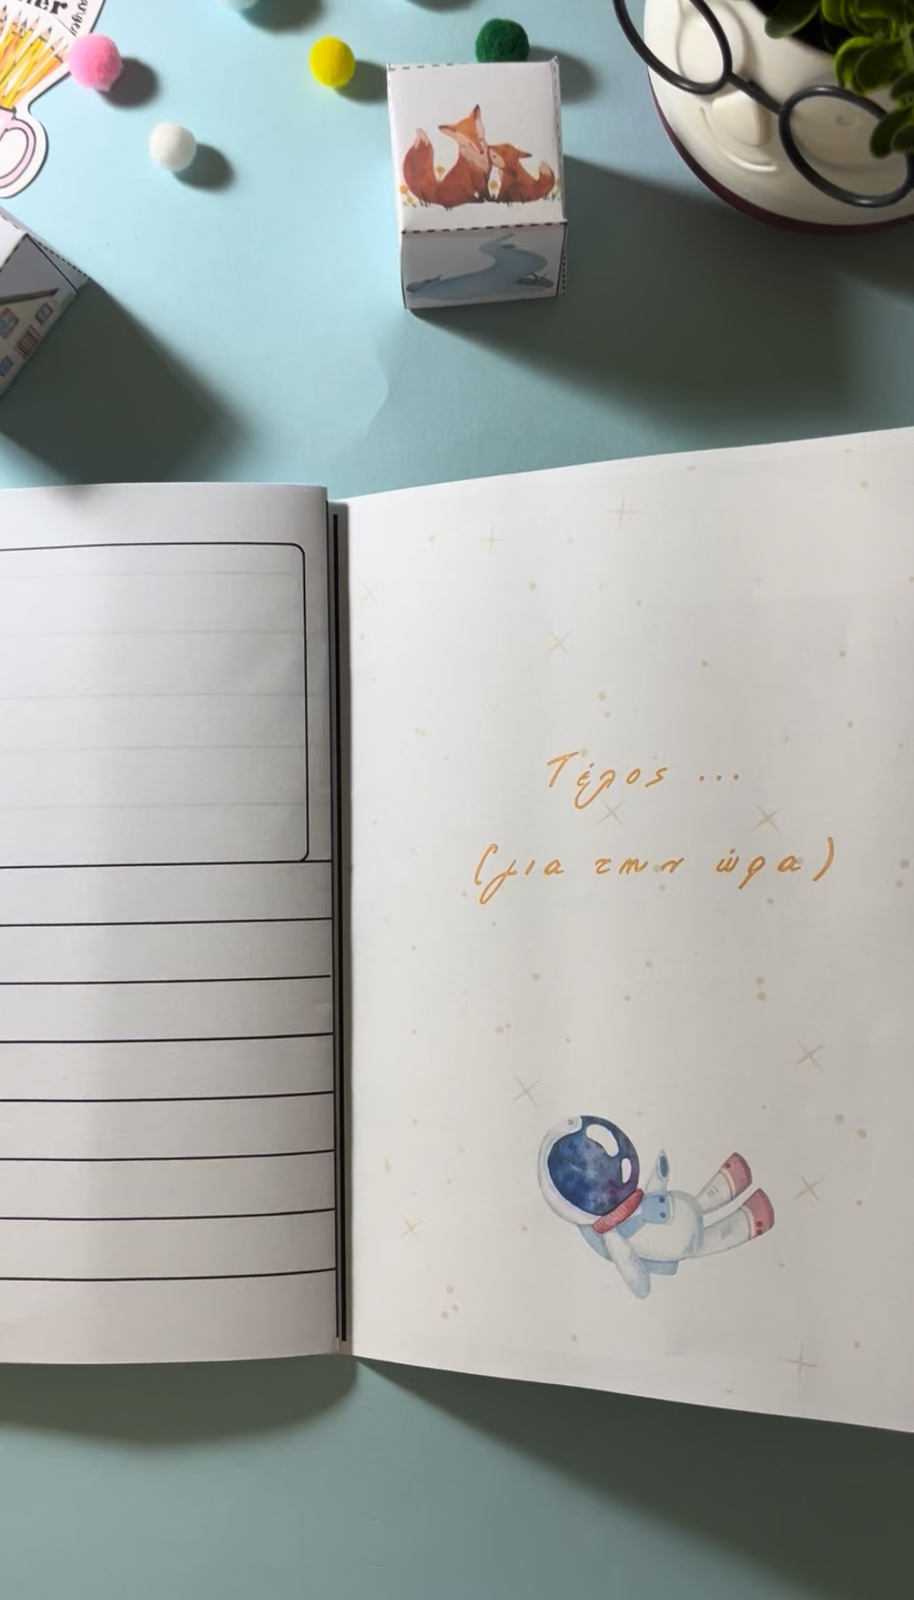 Τέλος ...
(για την ώρα)